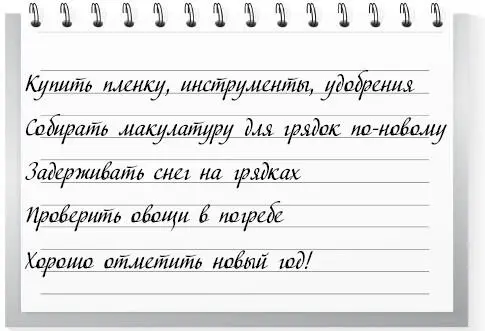 Купить пленку, инструменты, удобрения
Собирать макулатуру для грядок по-новому
Задерживать снег на грядках
Проверить овощи в погребе
Хорошо отметить новый год!